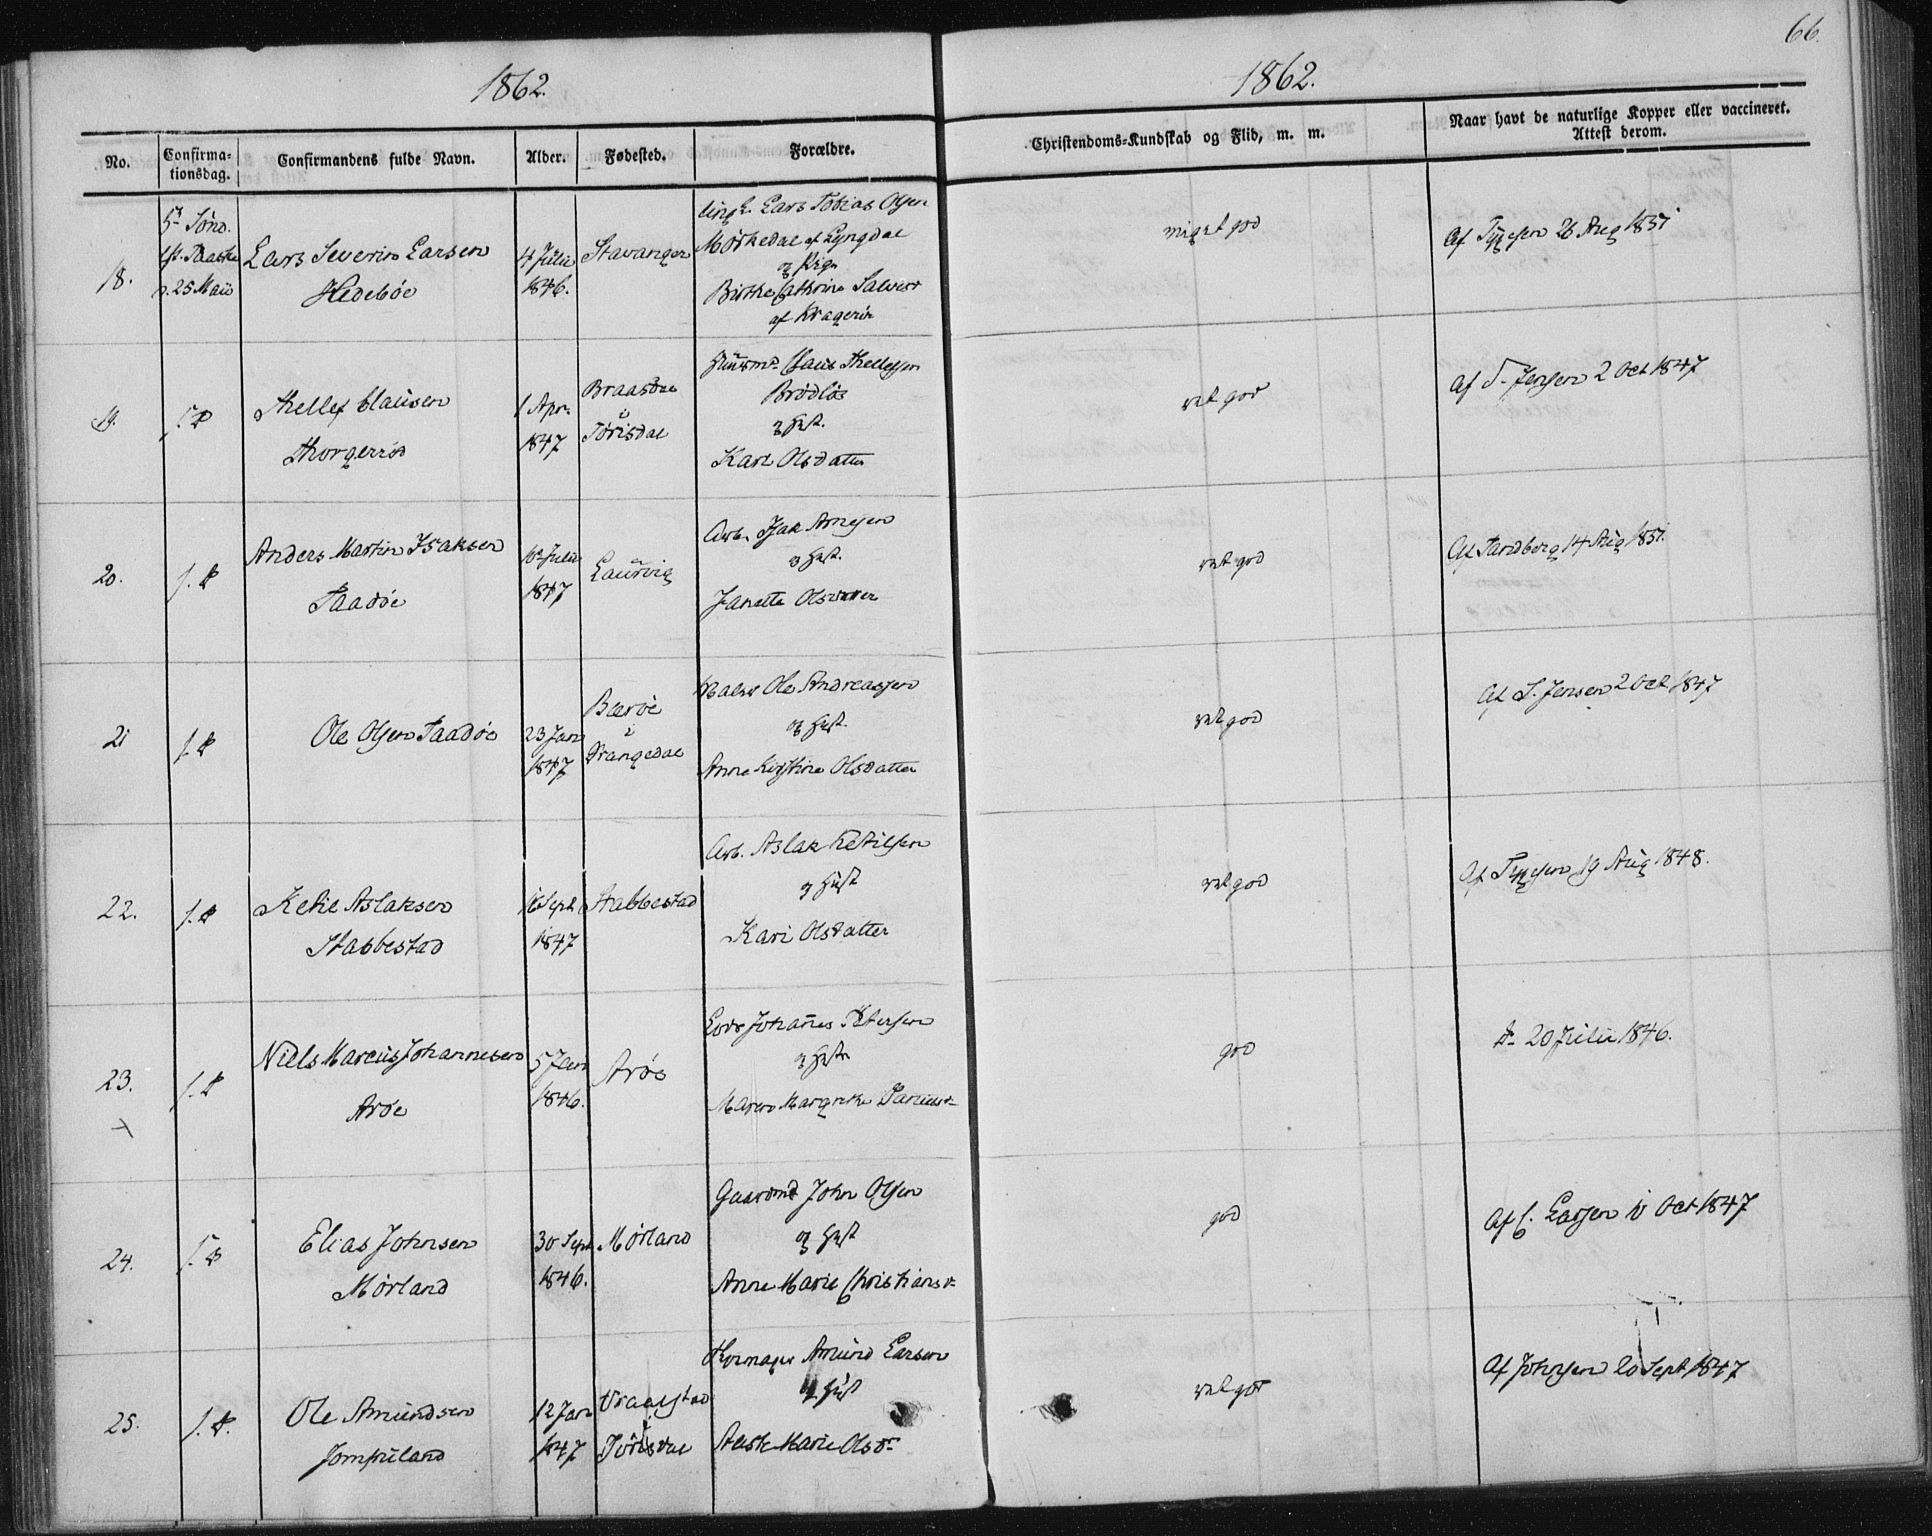 66.
1862.
1862.
No.
Confirma-
tionsdag.
Confirmandens fulde Navn.
Alder.
Fødested.
Forældre.
Christendoms-Kundskab og Flid, m. m.
Naar havt de naturlige Kopper eller vaccineret.
Attest derom.
18.
5t Sønd.
eft. Paaske
d. 25 Maii
Lars Severin Larsen
Hedebøe
4 Julii
1846.
Stavanger
Ungk. Lars Tobias Olsen
Mørkedal af Lyngdal
og Pige
Birthe Cathrine Salves
af Kragerøe
miget god
Af Tygesen 26 Aug 1851
19.
Thellef Clausen
Thorgersrød
1 Apr.
1847
Braasdal
i
Tørisdal
Huusmd. Claus Thellefsen
Brødløs
og Hust.
Kari Olsdatter
ret god
Af J. Jensen 2 Oct 1847
20.
Anders Martin Isaksen
Taadøe
10 Julii
1847
Laurvig
Arb. Isak Arnesen
og Hust.
Janette Olsdatter
ret god
Af Sandberg 14 Aug 1851.
21
Ole Olsen Taadøe
23 Jan
1847
Barøe
i
Drangedal
Ole Andreassen
og Hust.
Anne Kirstine Olsdatter
ret god
Af J. Jensen 2 Oct 1847
22.
Ketil Aslaksen
Stabbestad
16 Sept
1847
Stabbestad
Arb. Aslak Ketilsen
og Hust
Kari Olsdatter
ret god
Af Tygesen 19 Aug 1848.
23.
Niels Marcus Johannesen
Arøe
5 Jan
1846.
Arøe
Lods Johannes Petersen
og Hust
Maren Margrethe
god
20 Julii 1846.
24.
Elias Johnsen
Mørland
30 Sept
1846.
Mørland
Gaardmd John Olsen
og Hust
Anne Marie Christiansd.
god
Af C. Larsen 10 Oct 1847
25.
Ole Amundsen
Jomfruland
12 Jan
1847
Vraalstad
i
Tørisdal
Amund Larsen
og Hust
Aaste Marie Olsdr
ret god
Af Johnsen 20 Sept 1847